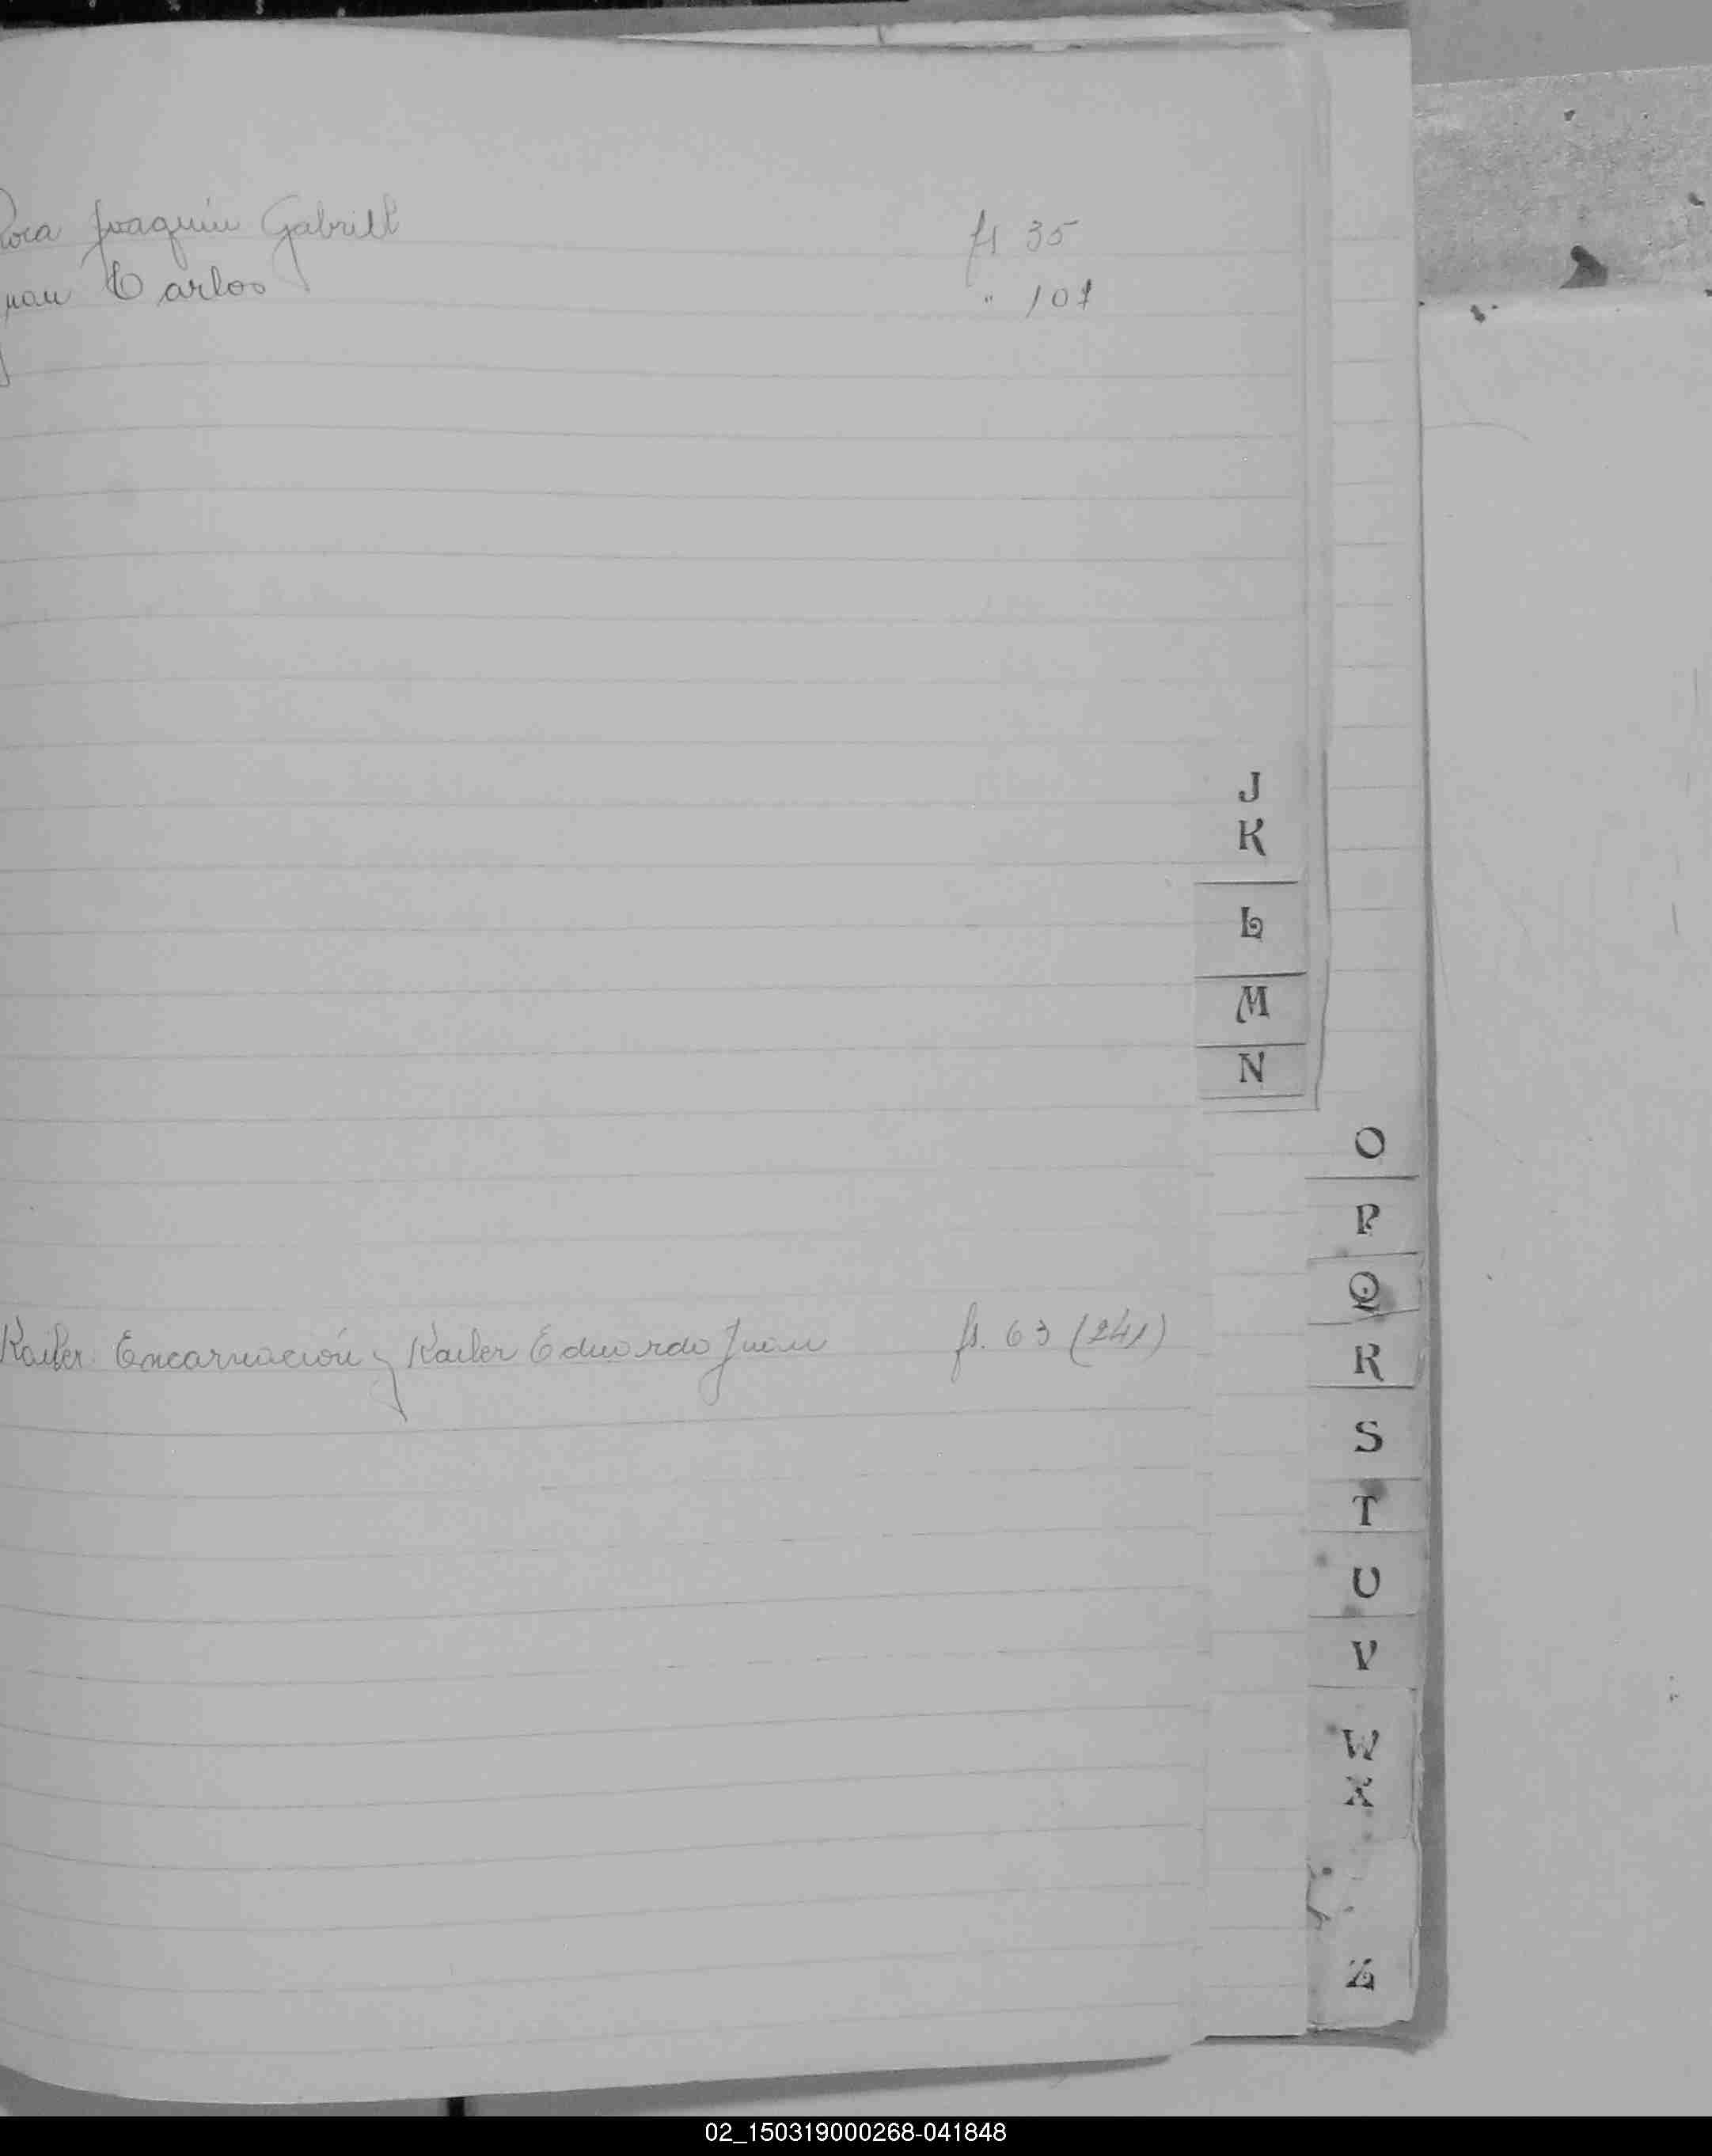 Joaquin Gabriel fs 35
Carlos " 107
Kailer Encarnación y Kailer Eduardo Juan fs. 63 (241)
J
K
L
M
N
O
P
Q
R
S
T
U
V
W
X
Z
02_150319000268-041848